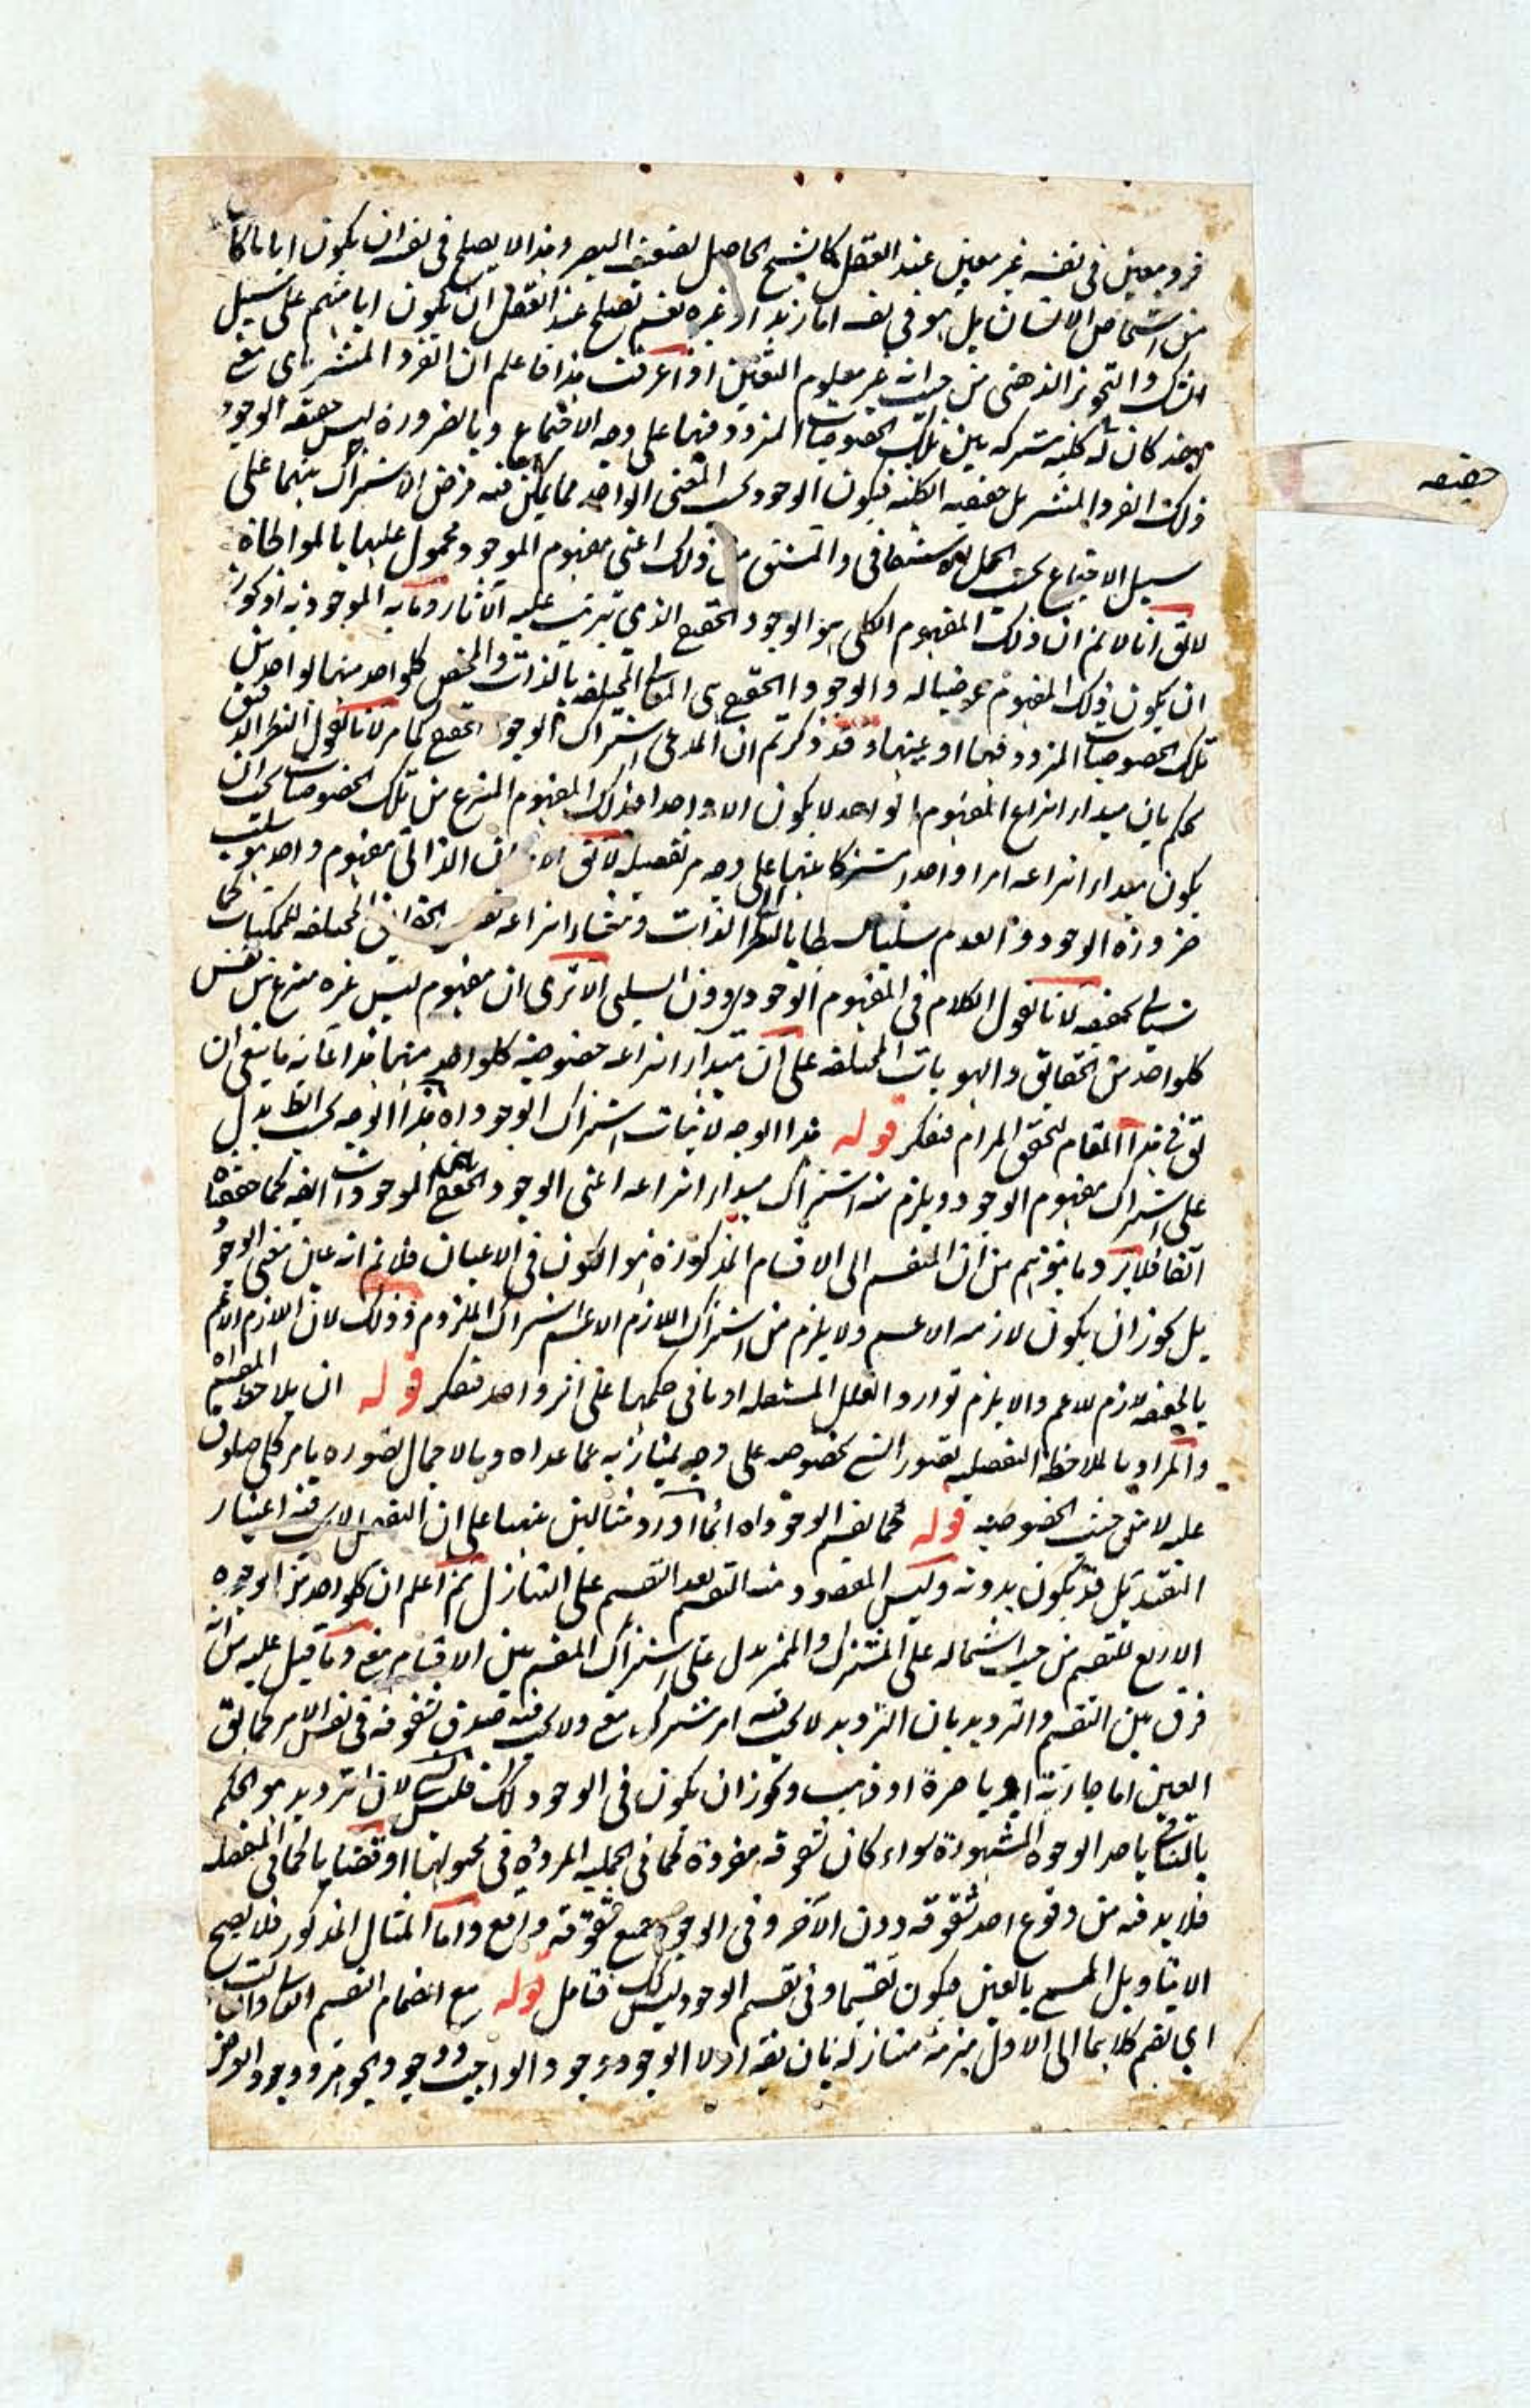 فرد معين فى نفسه غير معين عند العقل كالشبح الحاصل لضعيف البصر وهذا لا يصلح فى نفسه ان يكون ايا ما كان
من اشخاص الانسان بل هو فى نفسه اما زيد او غيره نعم يصلح عند العقل ان يكون ايا منهم على سبيل
الشك والتجويز الذهنى من حيث انه غير معلوم التعين اذا عرفت هذا فاعلم ان الفرد المنتشر باى معنى
اخذ كان له كلية مشتركة بين تلك الخصوصيات المتردد فيها على وجه الاجتماع وبالضرورة ليس حقيقة الوجود
ذلك الفرد المنتشر بل حقيقته الكلية فيكون الوجود بحسب المعنى الواحد مما يمكن فيه فرض الاشتراك بينهما على
سبيل الاجتماع بحسب الحمل الاشتقاقى والمشتق من ذلك اعنى مفهوم الموجود محمول عليها بالمواطاة
لا يق انا لا نم ان ذلك المفهوم الكلى هو الوجود الحقيقى الذى يترتب عليه الآثار وما به الموجودية اذ يجوز
ان يكون ذلك المفهوم عرضيا له والوجود الحقيقى هى المعانى المختلفة بالذات والمختص كل واحد منها لواحد من
تلك الخصوصيات المتردد فيها او عينها وقد ذكرتم ان المدعى اشتراك الوجود الحقيقى كما مر لانا نقول النظر الدقيق
يحكم بان مبدا انتزاع المفهوم الواحد لا يكون الا واحدا فذلك المفهوم المنتزع من تلك الخصوصيات يجب ان
يكون مبدا انتزاعه امرا واحدا مشتركا بينها على وجه مر تفصيله لا يق الامكان الذاتى مفهوم واحد هو سلب
ضرورة الوجود والعدم سلبا بسيطا بالنظر الى الذات ومنشاء انتزاعه نفس الحقائق المختلفة للممكنات كما
سياتى تحقيقه لانا نقول الكلام فى المفهوم الوجودى دون السلبى الا ترى ان مفهوم ليس غيره منتزع من نفس
كل واحد من الحقائق والهويات المختلفة على ان مبدا انتزاعه خصوصية كل واحد منها هذا غاية ما ينبغى ان
يق فى هذا المقام لتحقق المرام فتفكر قوله هذا الوجه لاثبات اشتراك الوجود اه هذا الوجه بحسب الظ يدل
على اشتراك مفهوم الوجود ويلزم منه اشتراك مبدا انتزاعه اعنى الوجود الحقيقى بين الموجودات ايضا كما حققناه
آنفا فلا يرد وما يتوهم من ان المنقسم الى الاقسام المذكورة هو الكون فى الاعيان فلا نم انه عين معنى الوجود
بل يجوز ان يكون لازمه الاعم ولا يلزم من اشتراك اللازم الاعم اشتراك الملزوم وذلك لان اللازم الاعم
بالحقيقة لازم للاعم والا يلزم توارد العلل المستقلة او ما فى حكمها على اثر واحد فتفكر قوله ان يلاحظ المقسم اه
والمراد بالملاحظة التفصيلية تصور الشى بخصوصه على وجه يمتاز به عما عداه وبالاجمال تصوره بامر كلى صادق
عليه لا من حيث الخصوصية قوله كما يقسم الوجود اه انما اورد مثالين تنبيها على ان التقسيم لا يجب فيه اعتبار
التقييد بل قد يكون بدونه وليس المقصود منه التقسيم بعد التقسيم على التنازل ثم اعلم ان كل واحد من الوجوه
الاربع للتقسيم من حيث اشتماله على المشترك والمميز يدل على اشتراك المقسم بين الاقسام معنى وما قيل عليه من انه
فرق بين التقسيم والترديد بان الترديد لا يجب فيه امر مشترك معنى ولا يجب فيه صدق شقوقه فى نفس الامر كما يق
العين اما جارية او باصرة او ذهب ويجوز ان يكون فى الوجود كذلك فليس بشى لان الترديد هو الحكم
بالتنافى باحد الوجوه المشهورة سواء كان شقوقه مفردة كما فى الحملية المرددة فى محمولها او قضايا كما فى المنفصلة
فلا بد فيه من وقوع احد شقوقه دون الآخر وفى الوجود جميع شقوقه واقع واما المثال المذكور فلا يصح
الا بتاويل المسمى بالعين فيكون تقسيما وفى تقسيم الوجود ليس كذلك فتامل قوله مع انضمام التقسيم الثانى والثالث
اى تقسيم كلاهما الى الاول بمرتبة متنازلة بان يقه اولا الوجود وجود الواجب ووجود الجوهر ووجود العرض
حقيقه